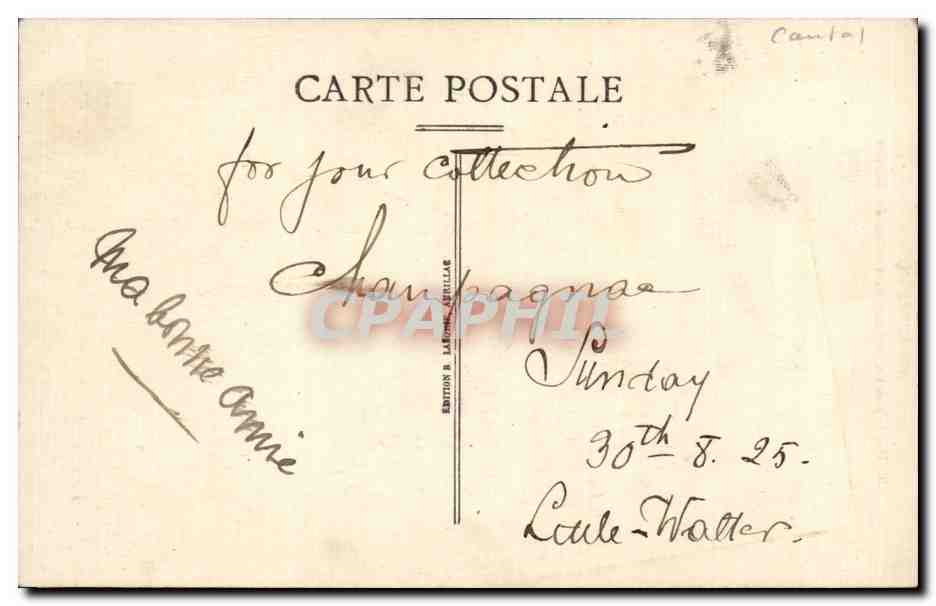 Cantal
CARTE POSTALE
for your collection
Champagnac
ma bonne amie
CPAPHIL
EDITION B LABORIE, AURILLAC
Sunday
30th 8. 25.
-Walter.